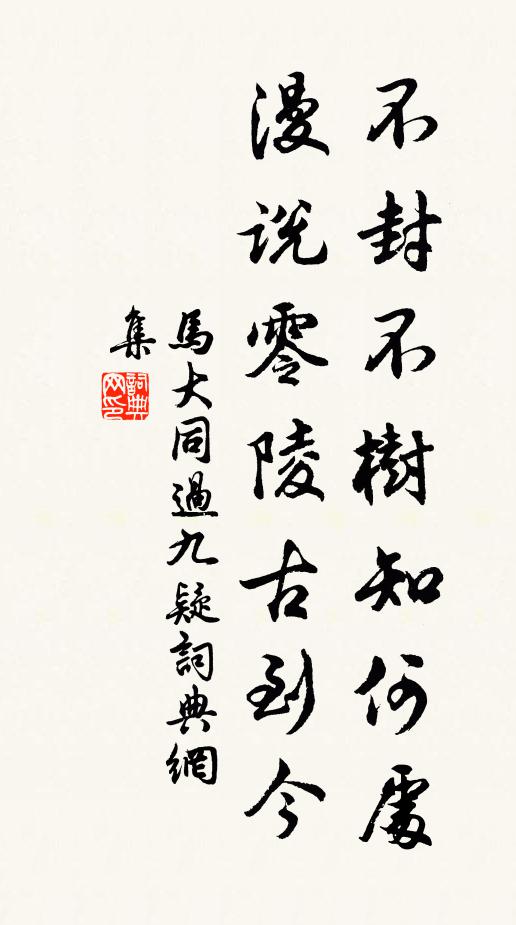 不封不樹知何處
漫説零陵古到今
馬大同過九疑詞典網
集
詞典
网印